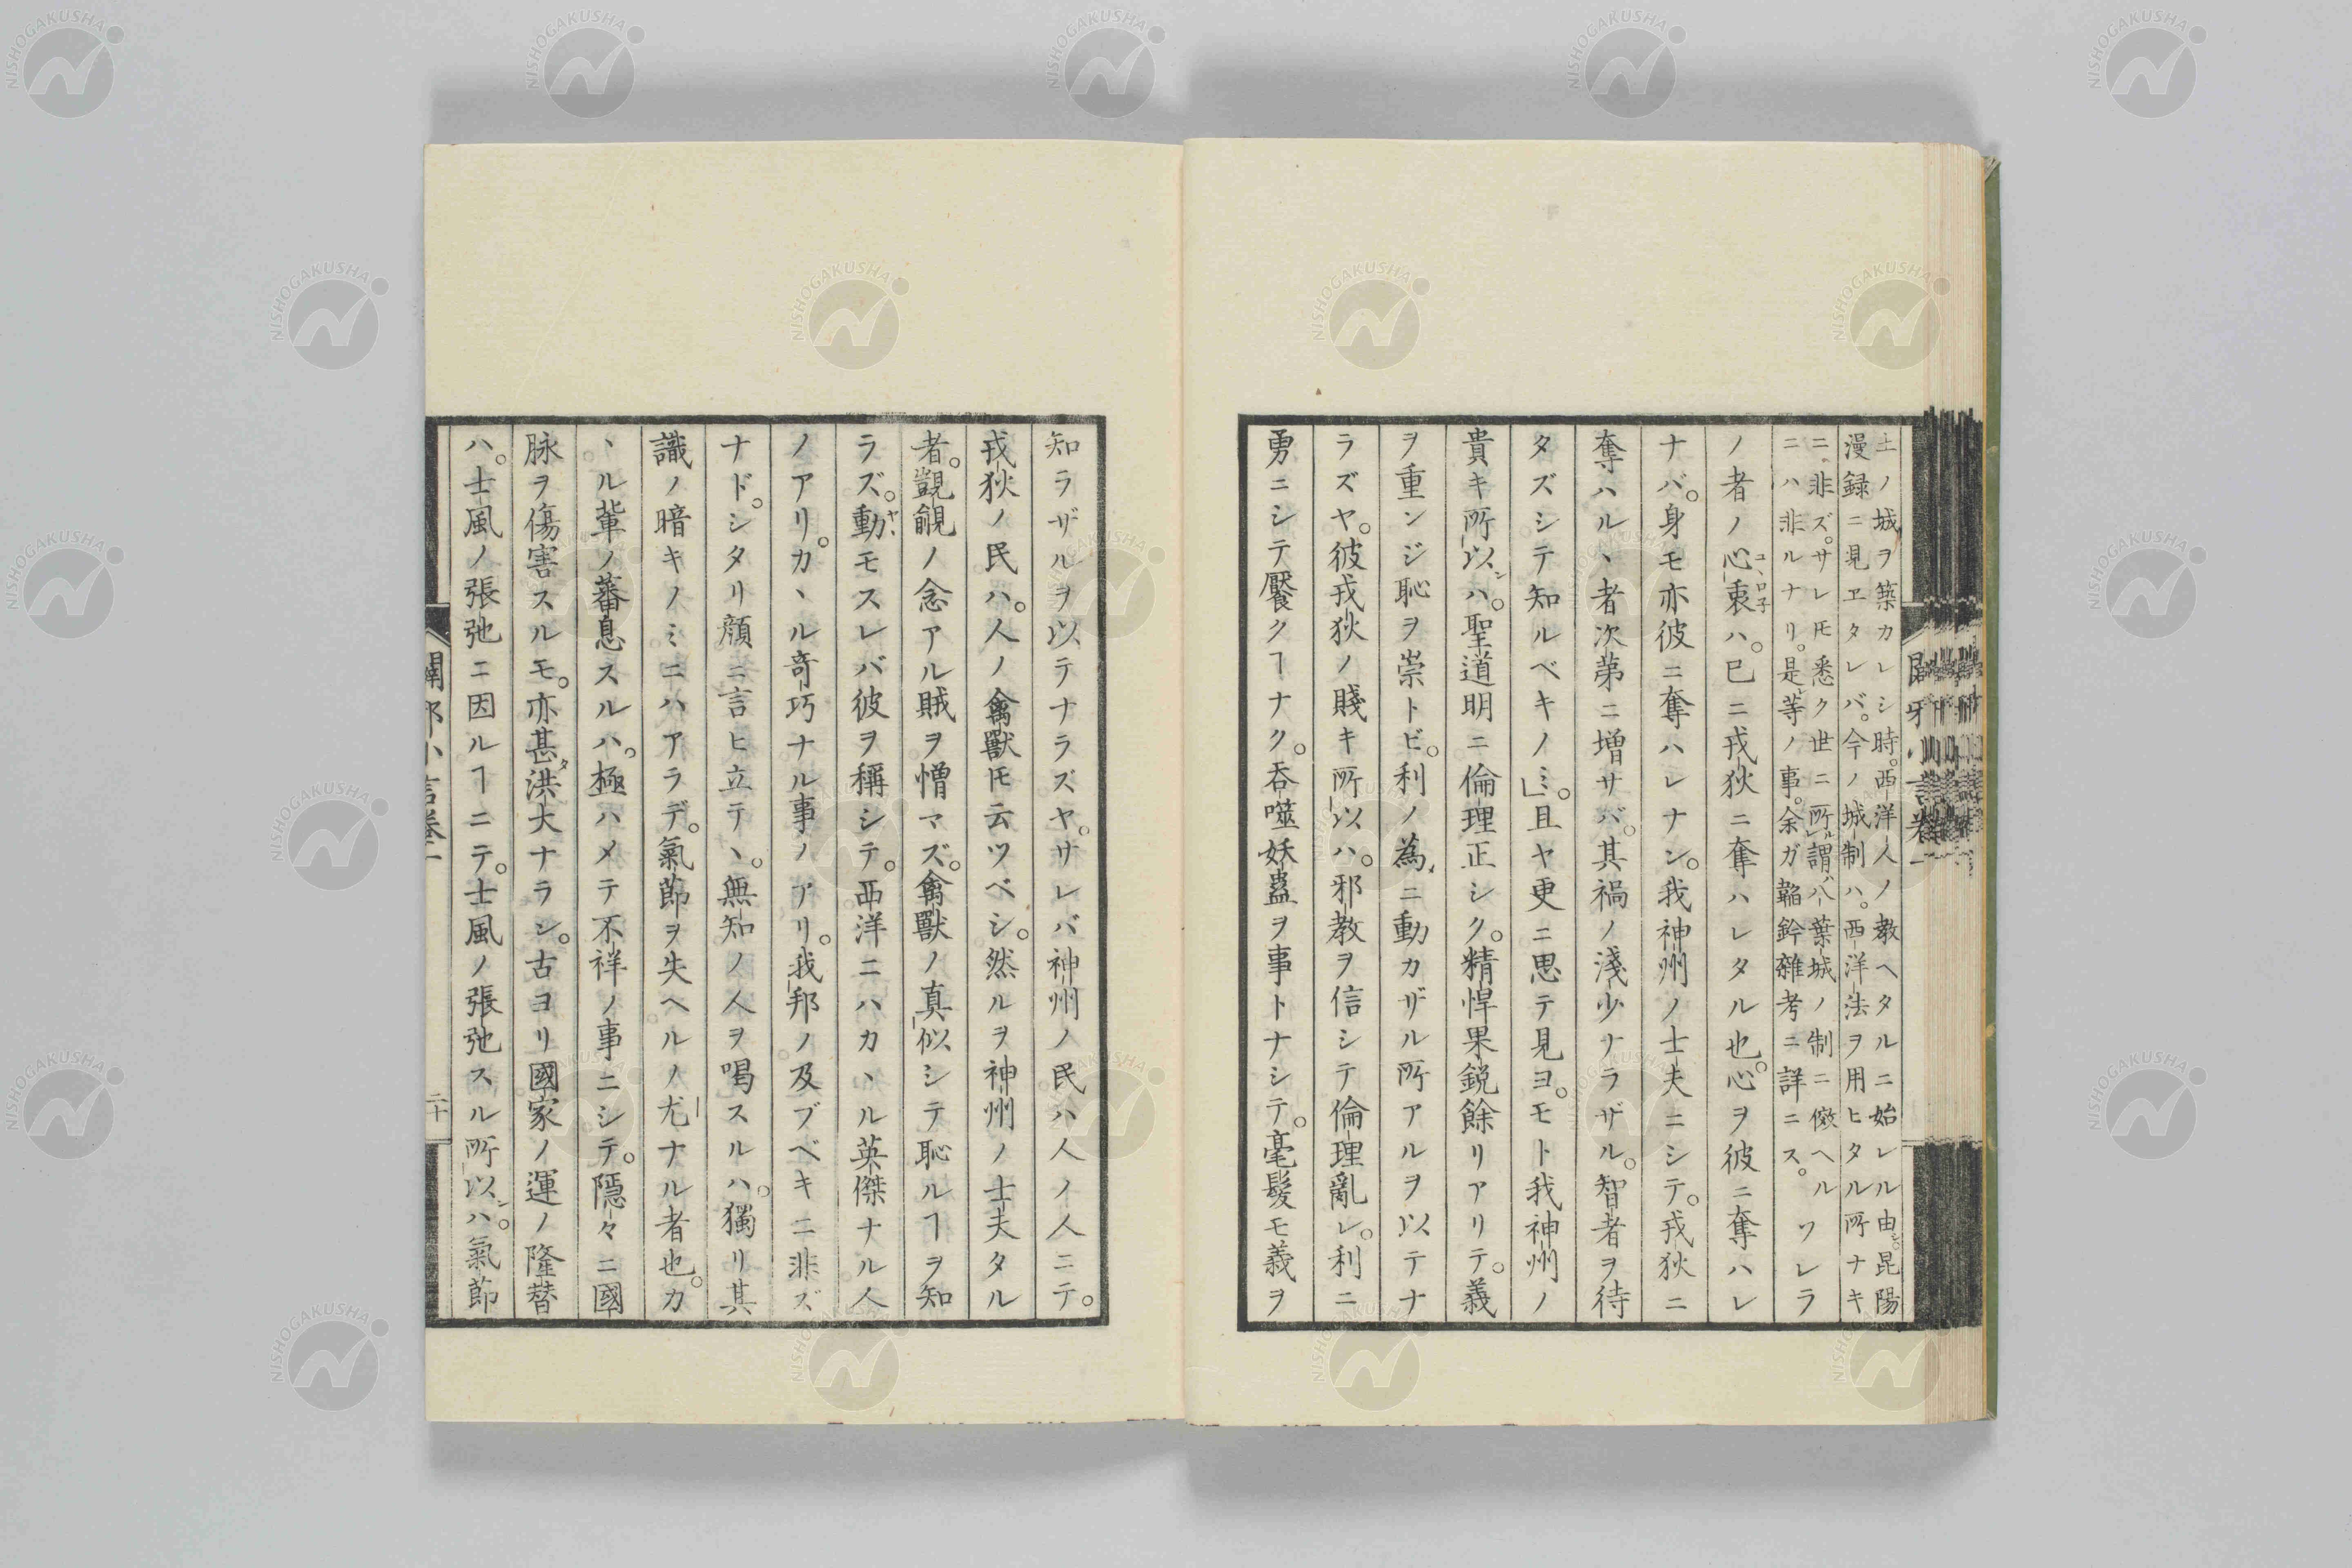 土ノ城ヲ築カレシ時。西洋人ノ教ヘタルニ始レル由。昆陽
漫録ニ見ヱタレバ。今ノ城制ハ。西洋法ヲ用ヒタル所ナキ
ニ非ズ。サレ𪜈悉ク世ニ所謂八葉城ノ制ニ倣ヘル
ニハ非ルナリ。是等ノ事。余ガ韜鈐雜考ニ詳ニス。ワレラ
ノ者ノ心裏ハ。已ニ戎狄ニ奪ハレタル也。心ヲ彼ニ奪ハレ
ナバ。身モ亦彼ニ奪ハレナン。我神州ノ士夫ニシテ。戎狄ニ
奪ハルヽ者次第ニ増サバ。其禍ノ淺少ナラザル。智者ヲ待
タズシテ知ルベキノミ。且ヤ更ニ思テ見ヨ。モト我神州ノ
貴キ所以ハ。聖道明ニ倫理正シク。精悍果鋭餘リアリテ。義
ヲ重ンジ恥ヲ崇トビ。利ノ為ニ動カザル所アルヲ以テナ
ラズヤ。彼戎狄ノ賤キ所以ハ。邪教ヲ信シテ倫理亂レ。利ニ
勇ニシテ饜クヿナク。吞噬妖蠱ヲ事トナシテ。毫髮モ義ヲ
知ラザルヲ以テナラズヤ。サレバ神州ノ民ハ人ノ人ニテ。
戎狄ノ民ハ。人ノ禽獸𪜈云ツベシ。然ルヲ神州ノ士夫タル
者。覬覦ノ念アル賊ヲ憎マズ。禽獸ノ真似シテ恥ルヿヲ知
ラズ。動モスレバ彼ヲ稱シテ。西洋ニハカヽル英傑ナル人
ノアリ。カヽル奇巧ナル事ノアリ。我邦ノ及ブベキニ非ズ
ナド。シタリ顔ニ言ヒ立テヽ。無知ノ人ヲ喝スルハ。獨リ其
識ノ暗キノミニハアラデ。氣節ヲ失ヘルノ尤ナル者也。カ
ヽル輩ノ蕃息スルハ。極ハメテ不祥ノ事ニシテ。隱々ニ國
脉ヲ傷害スルモ。亦甚洪大ナラシ。古ヨリ國家ノ運ノ隆替
ハ。士風ノ張弛ニ因ルヿニテ。士風ノ張弛スル所以ハ。氣節
闢邪小言卷一
二十
NISHOGAKUSHA